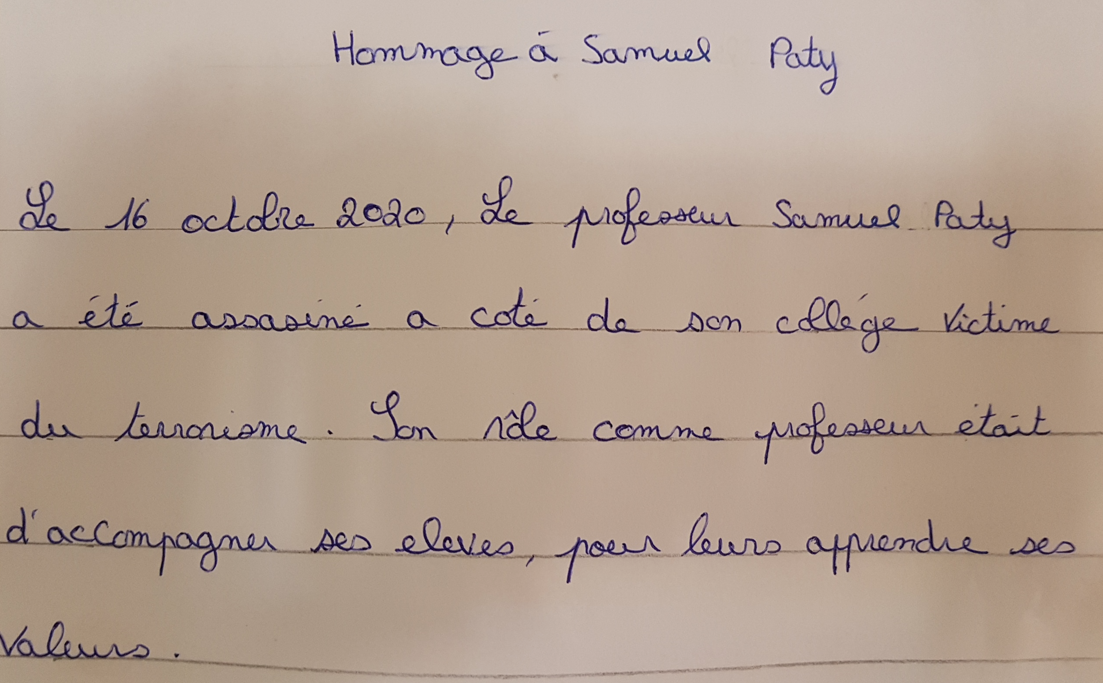 Hommage à Samuel Paty
Le 16 octobre 2020, Le professeur Samuel Paty
a été assasiné a coté de son collége victime
du terrorisme. Son rôle comme professeur était
d'accompagner ses eleves, pour leurs apprendre ses
valeurs.